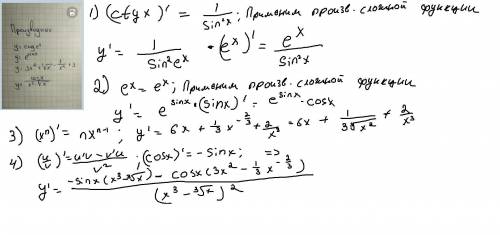 Производные
y = ctg e^x
y = e^sinx
y = 3x² + ∛x - 1/x² + 3
y = cosx / x³ - ∛x
1) (ctg x)' = 1/Sin²x; Применим произв. сложной функции
y' = 1/Sin²e^x • (e^x)' = e^x/Sin²x
2) e^x = e^x; Применим произв. сложной функции
y' = e^sinx • (sinx)' = e^sinx • cosx
3) (xⁿ)' = nx^n-1; y' = 6x + 1/3 x^-2/3 + 2/x³ = 6x + 1/3∛x² + 2/x³
4) (u/v)' = u'v - v'u / v²; (cosx)' = -sinx; =>
y' = -sinx (x³-∛x) - cosx (3x² - 1/3 x^-2/3) / (x³ - ∛x)²